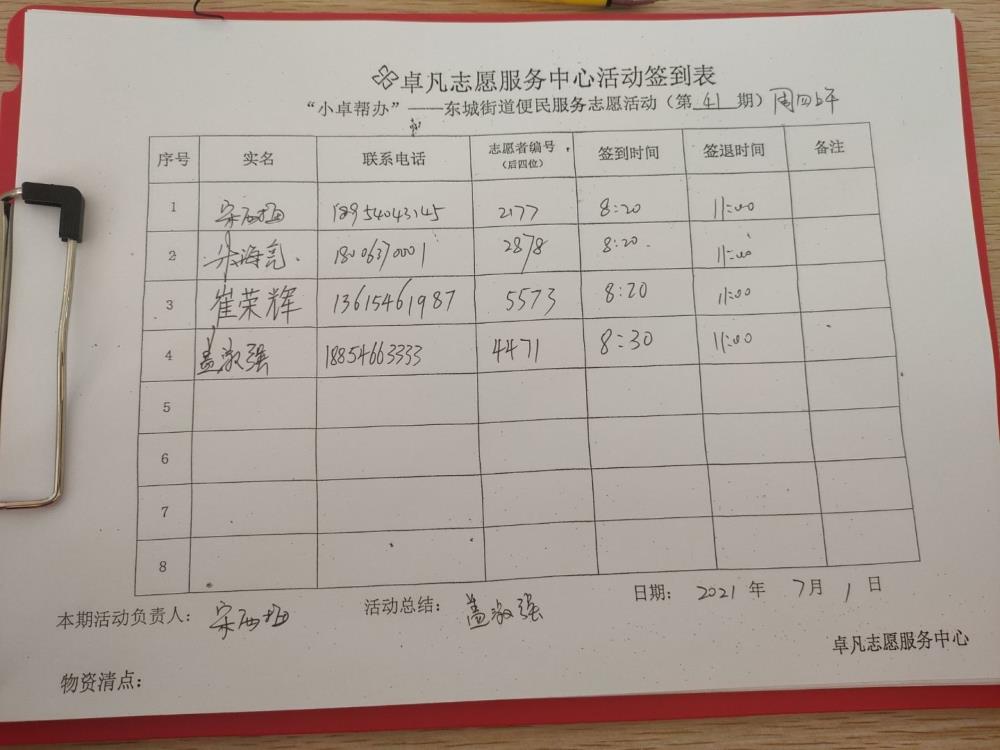 卓凡志愿服务中心活动签到表
“小卓帮办”——东城街道便民服务志愿活动（第 41 期）周四上午
序号 实名 联系电话 志愿者编号（后四位） 签到时间 签退时间 备注
1 18954043145 2177 8:20 11:00
2 海亮 18006370001 2878 8:20 11:00
3 崔荣辉 13615461987 5573 8:20 11:00
4 盖淑强 18854663333 4471 8:30 11:00
5
6
7
8
本期活动负责人： 活动总结：盖淑强 日期：2021 年 7 月 1 日
卓凡志愿服务中心
物资清点：